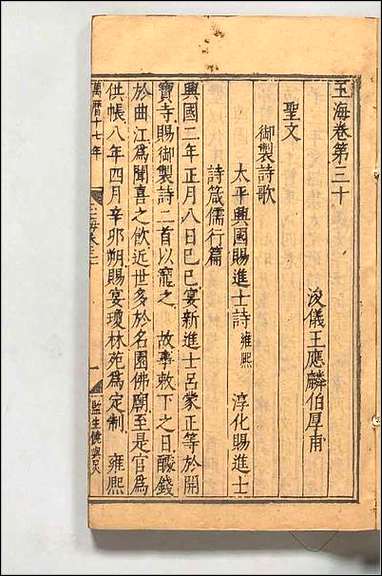 玉海卷第三十
浚儀王應麟伯厚甫
聖文
御製詩歌
太平興國賜進士詩 雍熙 淳化賜進士
詩箴儒行篇
興國二年正月八日己巳宴新進士呂蒙正等於開
寶寺賜御製詩二首以寵之 故事敕下之日醵錢
於曲江為聞喜之飲近世多於名園佛廟至是官為
供帳八年四月辛卯朔賜宴瓊林苑為定制 雍熙
萬曆十七年
玉海卷三十
一
監生